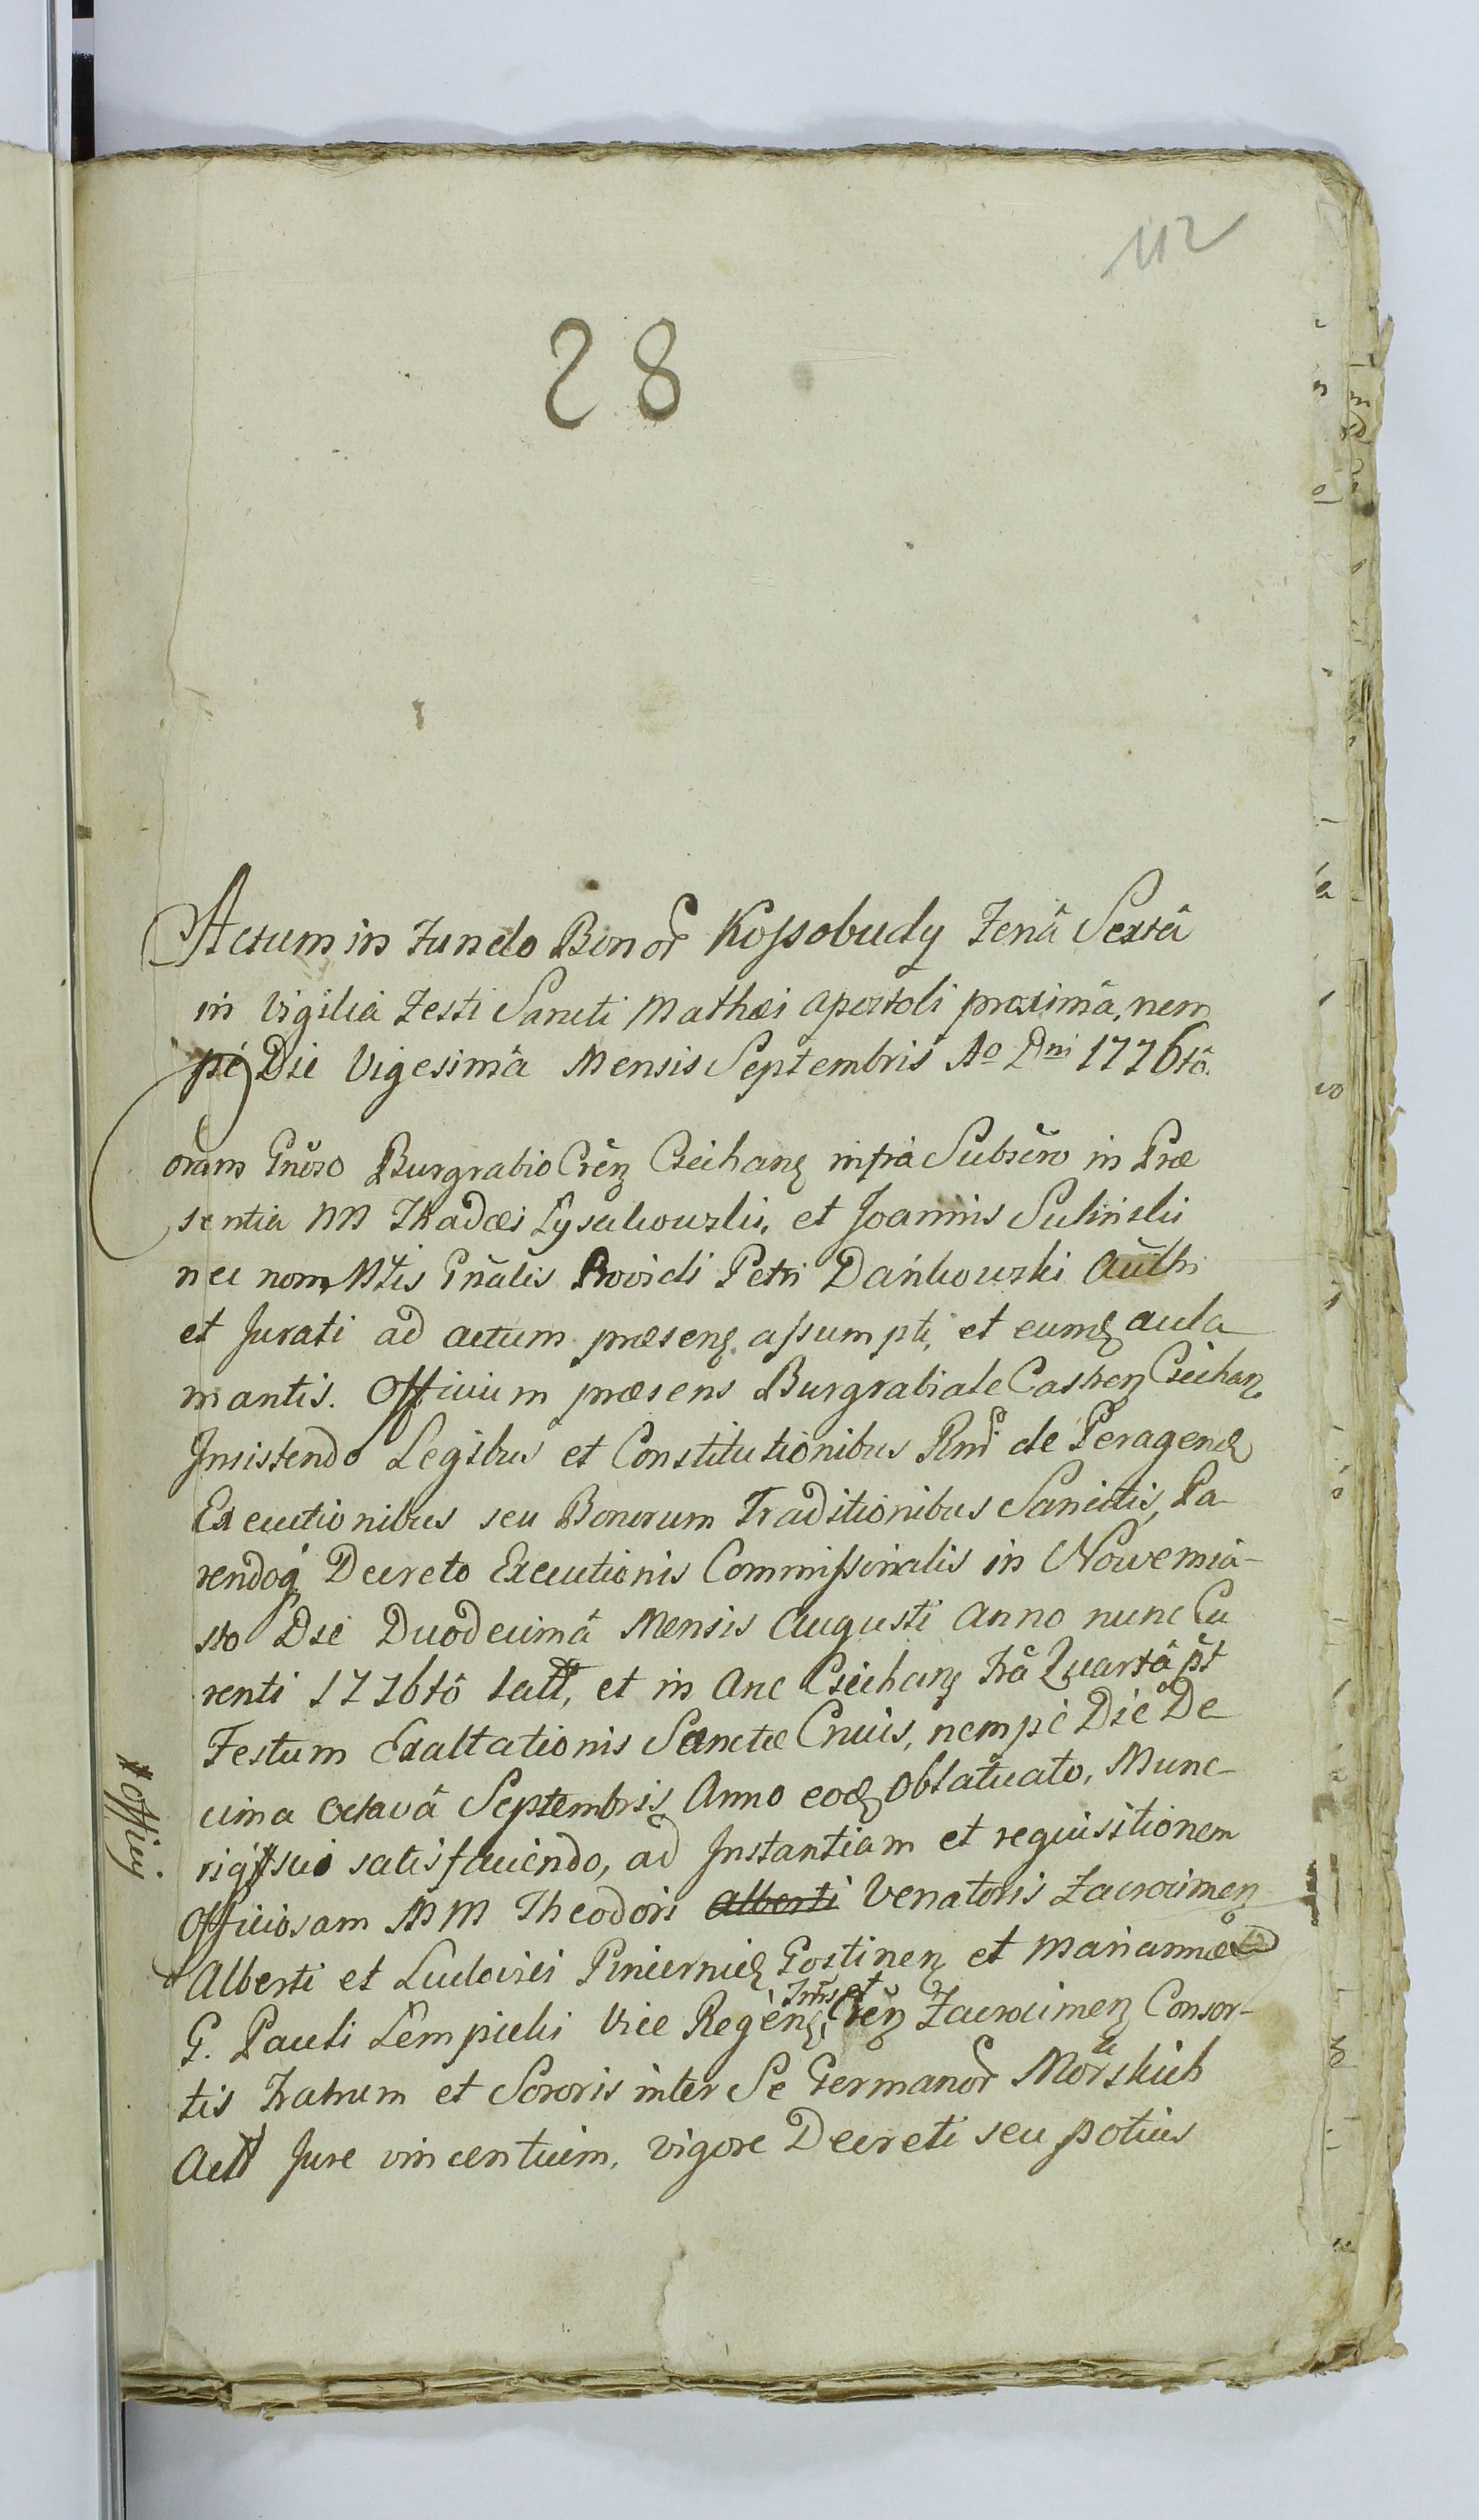 112
28
Actum in Fundo Bonor Kossobudy Feriâ Sextâ
in Vigilia Festi Sancti Mathæi Apostoli proximâ, nem
pé Die Vigesimâ Mensis Septembris Ao Dni 1776tô.
Coram Gnõso Burgrabio Crẽn Ciechan infrà Subscro in Præ
sentia NN Thadæi Lysakowski, et Joannis Sulinski
nec non Mtis Gnãlis Providi Petri Dańkowski Auth
et Jurati ad actum præsens assumpti, et eumd acla
mantis. Officium præsens Burgrabiale Castren Ciechan
Insistendo Legibus et Constitutionibus Rni de Peragend
Executionibus seu Bonorum Traditionibus Sancitis, Pa
rendoq Decreto Executionis Commissorialis in Nowemia-
sto Die Duodecimâ Mensis Augusti Anno nunc Cu
renti 1776tô latt, et in Anc Ciechan Frâ Quartâ pt
Festum Exaltationis Sanctæ Crucis, nempè Die De
cima octavâ Septembris Anno eod oblatucato, Mune
riq # suo satisfaciendo, ad Instantiam et requisitionem
# officij
Officiosam MM Theodori Alberti Venatoris Zacrocimen
Alberti et Ludovici Pincernid Gostinen et Mariannæ
G. Pauli Łempicki Vice Regèn, Trris et Crẽn Zacrocimen Consor-
tis Fratrum et Sororis inter Se Germanor Morskich
Actt Jure vincentium, vigore Decreti seu potius